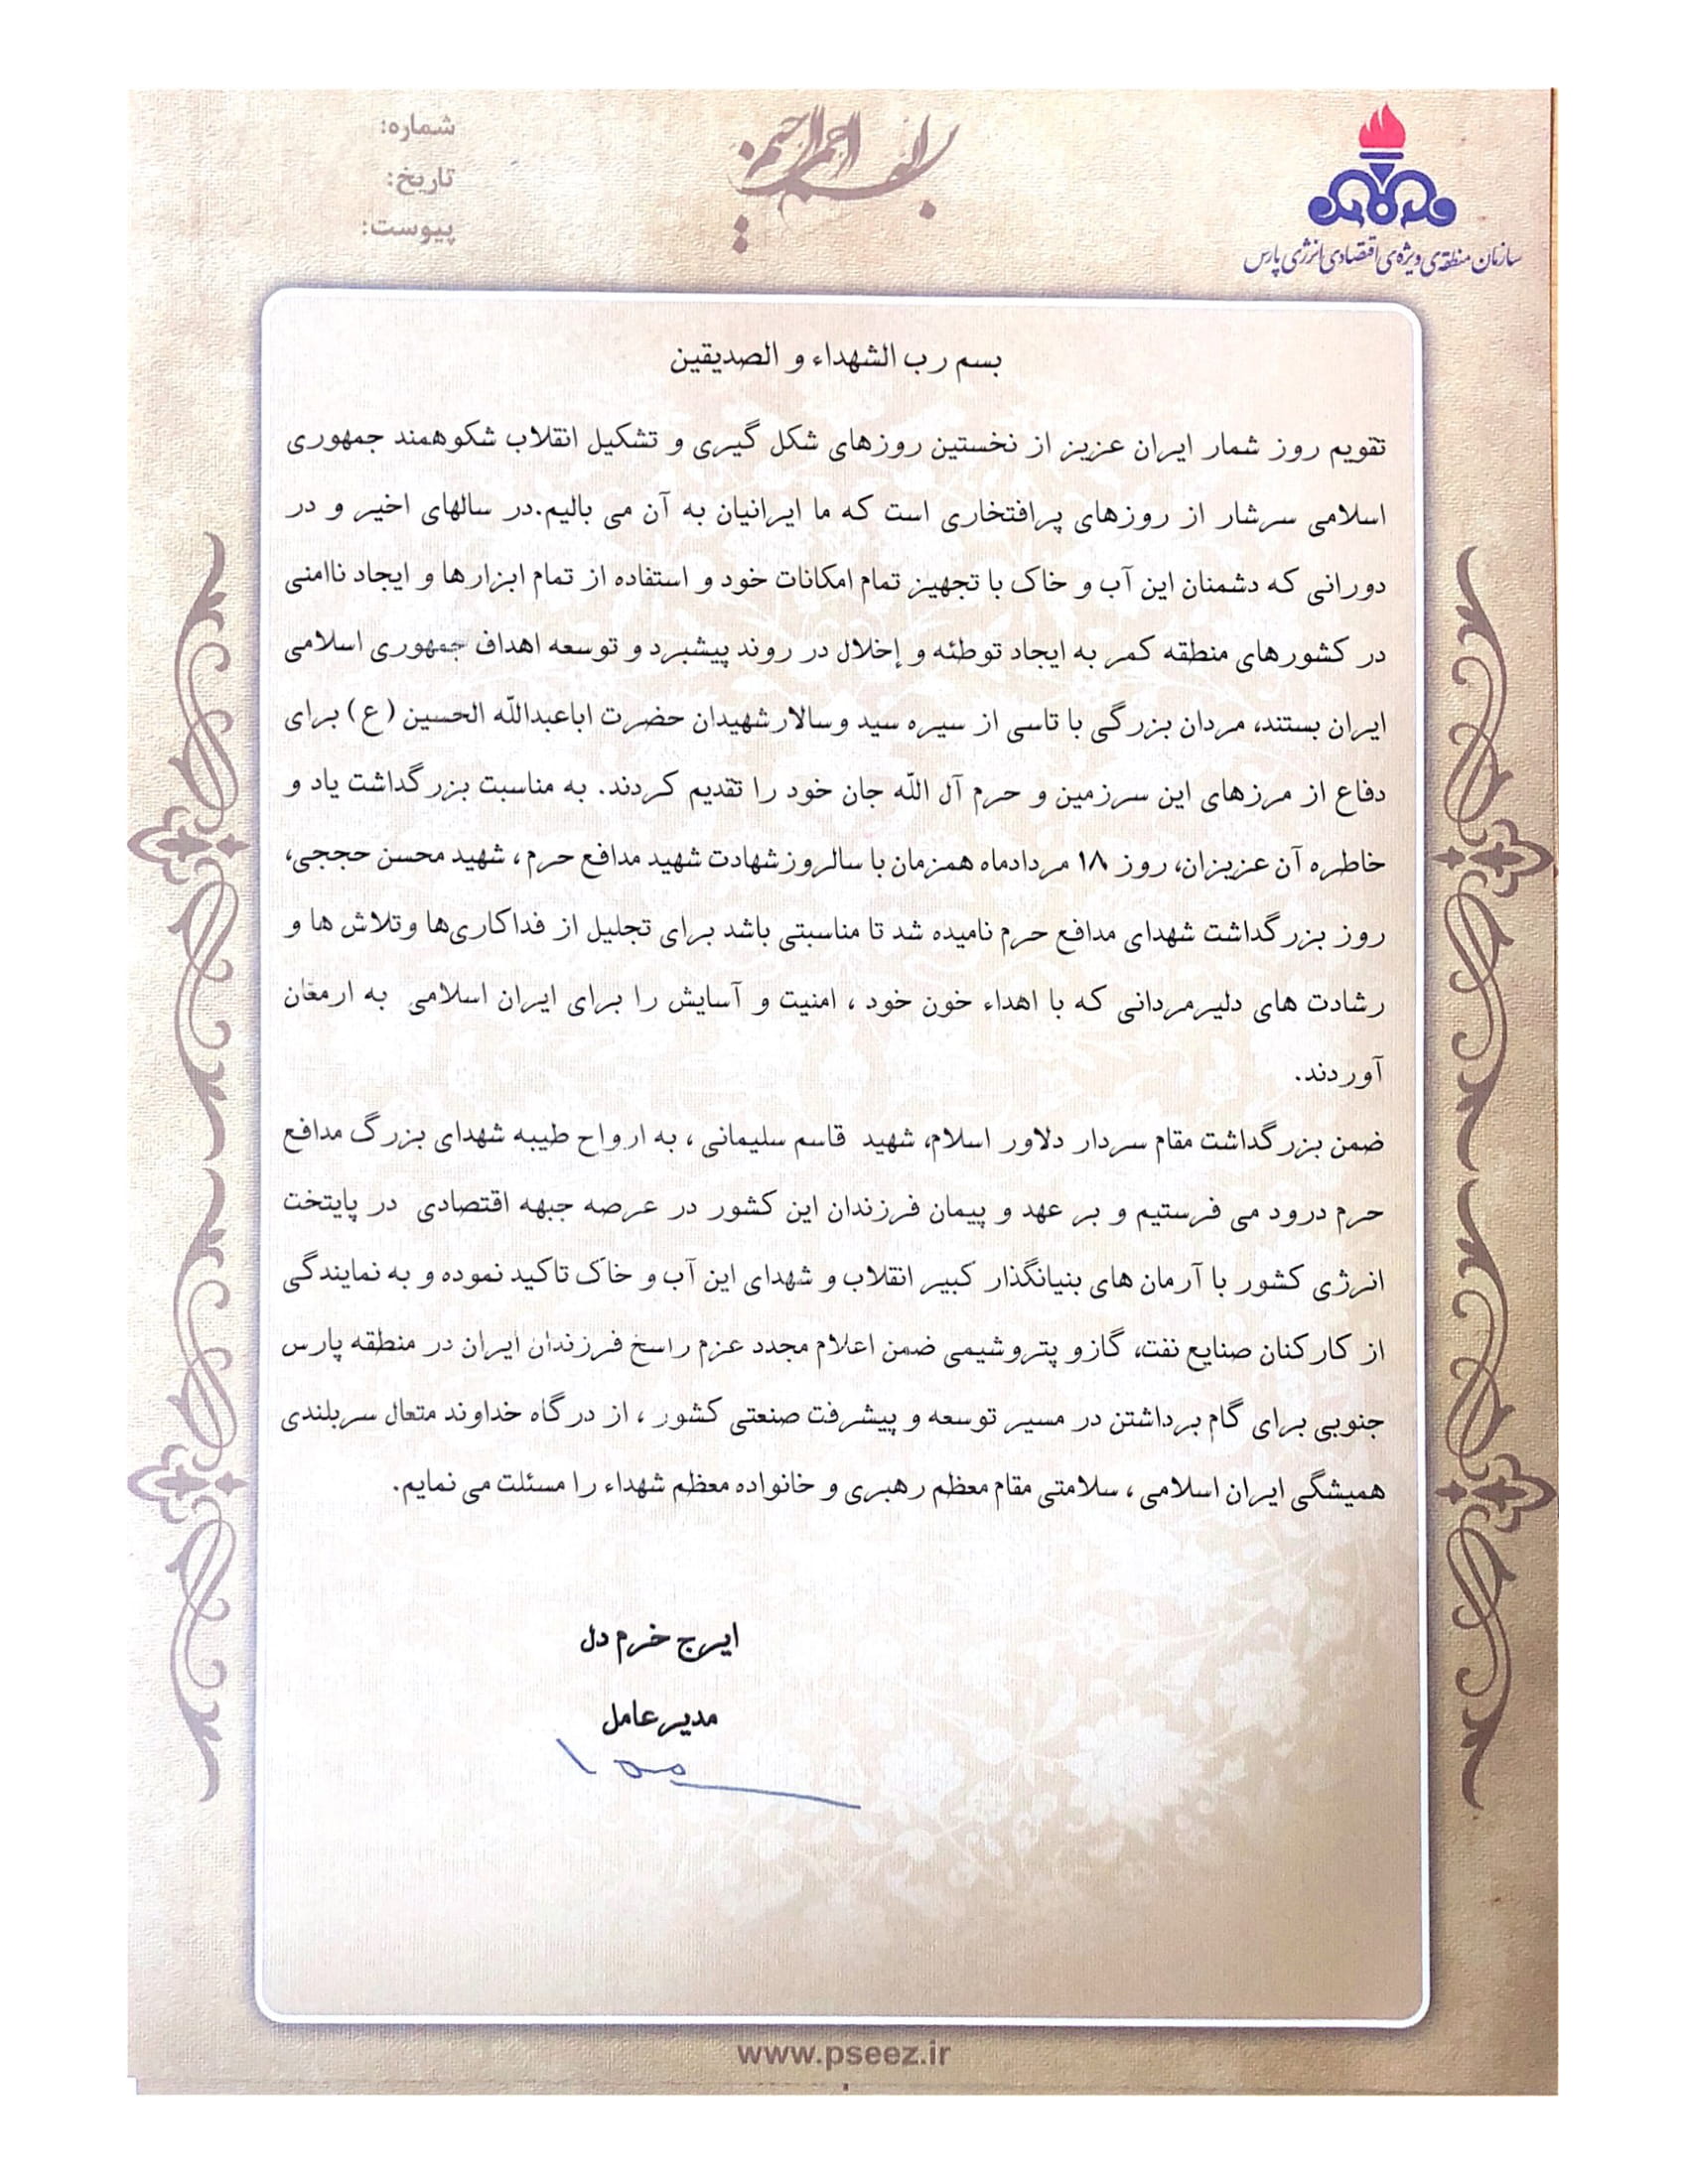 بسم الله الرحمن الرحیم
شماره:
تاریخ:
پیوست:
سازمان منطقه‌ی ویژه‌ی اقتصادی انرژی پارس
بسم رب الشهداء و الصدیقین
تقویم روز شمار ایران عزیز از نخستین روزهای شکل گیری و تشکیل انقلاب شکوهمند جمهوری
اسلامی سرشار از روزهای پرافتخاری است که ما ایرانیان به آن می بالیم.در سالهای اخیر و در
دورانی که دشمنان این آب و خاک با تجهیز تمام امکانات خود و استفاده از تمام ابزارها و ایجاد ناامنی
در کشورهای منطقه کمر به ایجاد توطئه و إخلال در روند پیشبرد و توسعه اهداف جمهوری اسلامی
ایران بستند، مردان بزرگی با تاسی از سیره سید وسالارشهیدان حضرت اباعبدالله الحسین (ع) برای
دفاع از مرزهای این سرزمین و حرم آل الله جان خود را تقدیم کردند. به مناسبت بزرگداشت یاد و
خاطره آن عزیزان، روز ۱۸ مردادماه همزمان با سالروزشهادت شهید مدافع حرم ، شهید محسن حججی،
روز بزرگداشت شهدای مدافع حرم نامیده شد تا مناسبتی باشد برای تجلیل از فداکاری‌ها وتلاش ها و
رشادت های دلیرمردانی که با اهداء خون خود ، امنیت و آسایش را برای ایران اسلامی به ارمغان
آوردند.
ضمن بزرگداشت مقام سردار دلاور اسلام، شهید قاسم سلیمانی ، به ارواح طیبه شهدای بزرگ مدافع
حرم درود می فرستیم و بر عهد و پیمان فرزندان این کشور در عرصه جبهه اقتصادی در پایتخت
انرژی کشور با آرمان های بنیانگذار کبیر انقلاب و شهدای این آب و خاک تاکید نموده و به نمایندگی
از کارکنان صنایع نفت، گازو پتروشیمی ضمن اعلام مجدد عزم راسخ فرزندان ایران در منطقه پارس
جنوبی برای گام برداشتن در مسیر توسعه و پیشرفت صنعتی کشور ، از درگاه خداوند متعال سربلندی
همیشگی ایران اسلامی ، سلامتی مقام معظم رهبری و خانواده معظم شهداء را مسئلت می نمایم.
ایرج خرم دل
مدیرعامل
www.pseez.ir